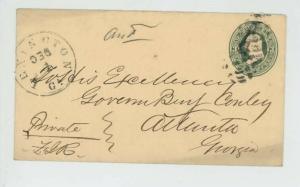 LEXINGTON
DEC
GA
To His Excellency
Governor Benj Conley
Atlanta
Georgia
Private